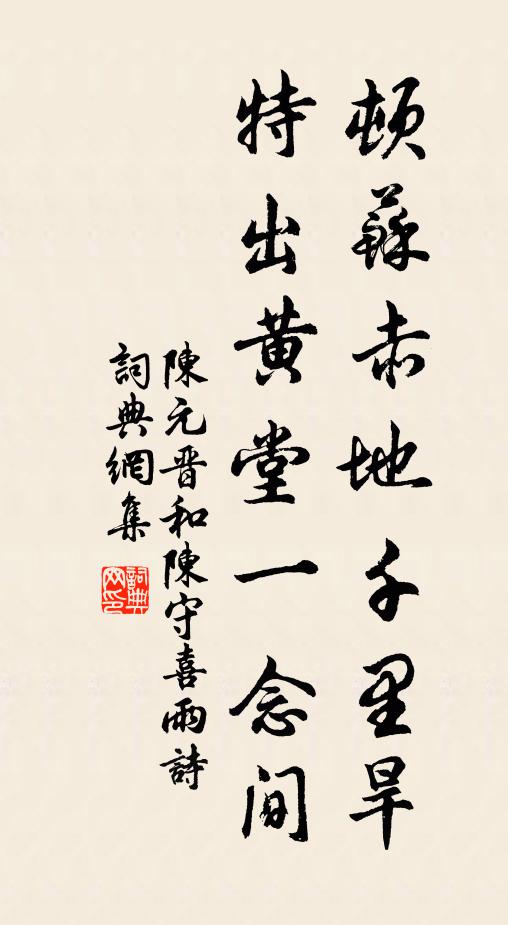 頓蘇赤地千里旱
特出黄堂一念间
陳元晋和陳守喜雨詩
詞典網集
詞典
网印